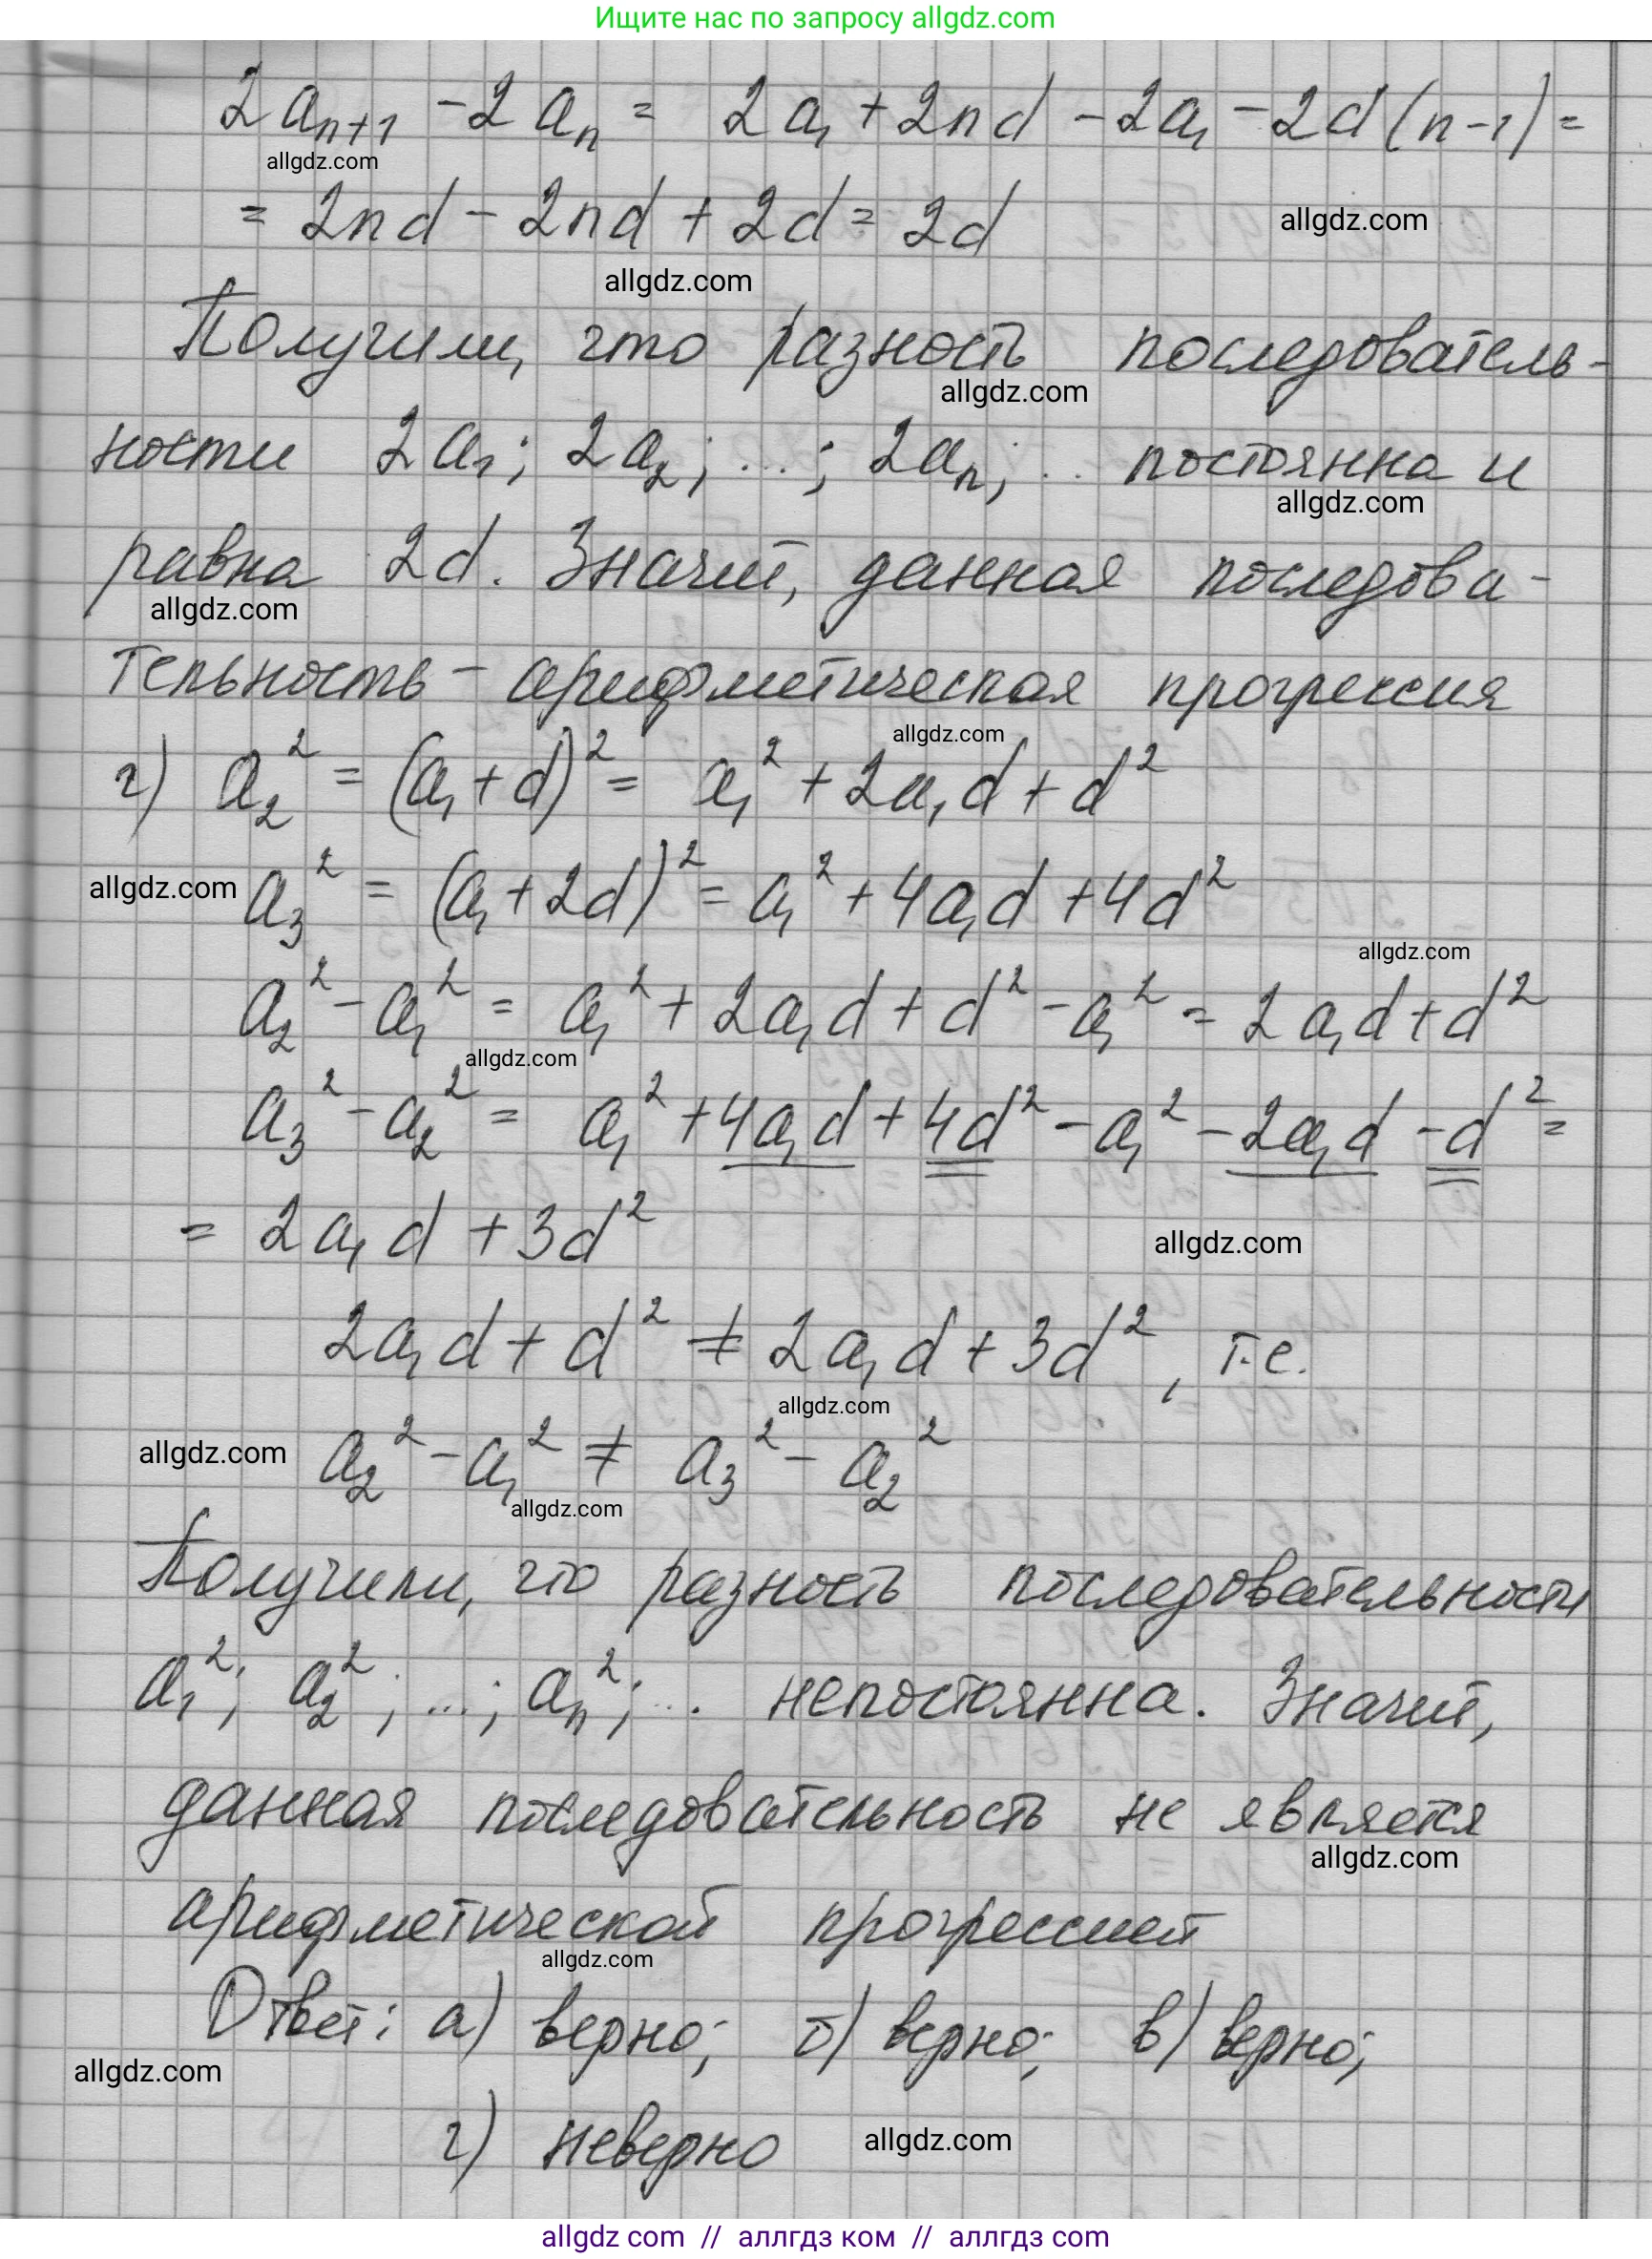 Ищите нас по запросу allgdz.com
2aₙ₊₁ - 2aₙ = 2a₁ + 2nd - 2a₁ - 2d(n-1) =
allgdz.com
= 2nd - 2nd + 2d = 2d
allgdz.com
allgdz.com
Получили, что разность последователь-
allgdz.com
ности 2a₁; 2a₂; ...; 2aₙ; ... постоянна и
allgdz.com
равна 2d. Значит, данная последова-
allgdz.com
тельность - арифметическая прогрессия
allgdz.com
г) a₂² = (a₁ + d)² = a₁² + 2a₁d + d²
allgdz.com
a₃² = (a₁ + 2d)² = a₁² + 4a₁d + 4d²
allgdz.com
a₂² - a₁² = a₁² + 2a₁d + d² - a₁² = 2a₁d + d²
allgdz.com
a₃² - a₂² = a₁² + 4a₁d + 4d² - a₁² - 2a₁d - d² =
= 2a₁d + 3d²
allgdz.com
2a₁d + d² ≠ 2a₁d + 3d², т.е.
allgdz.com
allgdz.com
a₂² - a₁² ≠ a₃² - a₂²
allgdz.com
Получили, что разность последовательности
a₁²; a₂²; ...; aₙ²; ... непостоянна. Значит,
данная последовательность не является
allgdz.com
арифметической прогрессией
allgdz.com
Ответ: а) верно; б) верно; в) верно;
allgdz.com
г) неверно
allgdz.com
allgdz com // аллгдз ком // аллгдз com